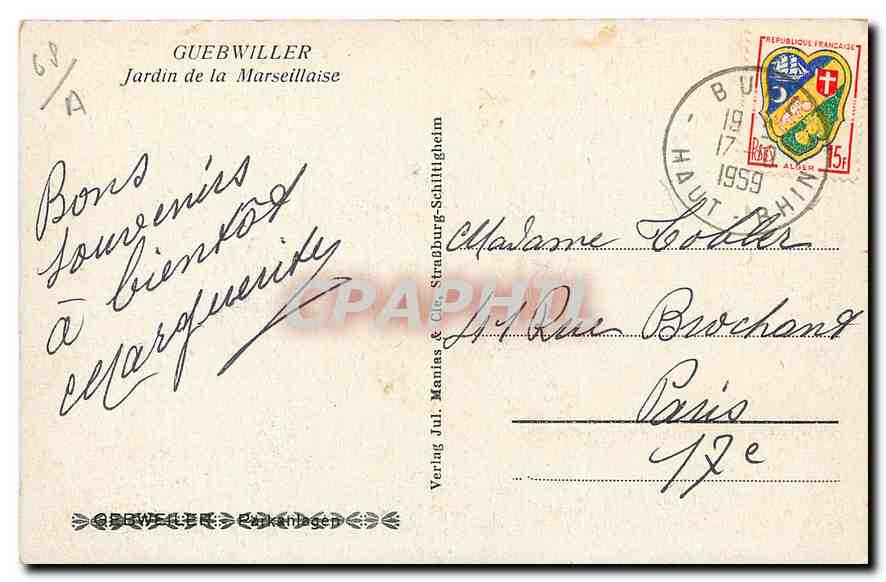 68/A
GUEBWILLER
Jardin de la Marseillaise
Bons
souvenirs
à bientôt
Marguerite
GEBWEILER Parkanlagen
Verlag Jul. Manias & Cie, Straßburg-Schiltigheim
REPUBLIQUE FRANÇAISE
RF
15F
ALGER
BU
19
17
1959
HAUT-RHIN
Madame Tobler
41 Rue Brochant
Paris
17e
CPAPHIL